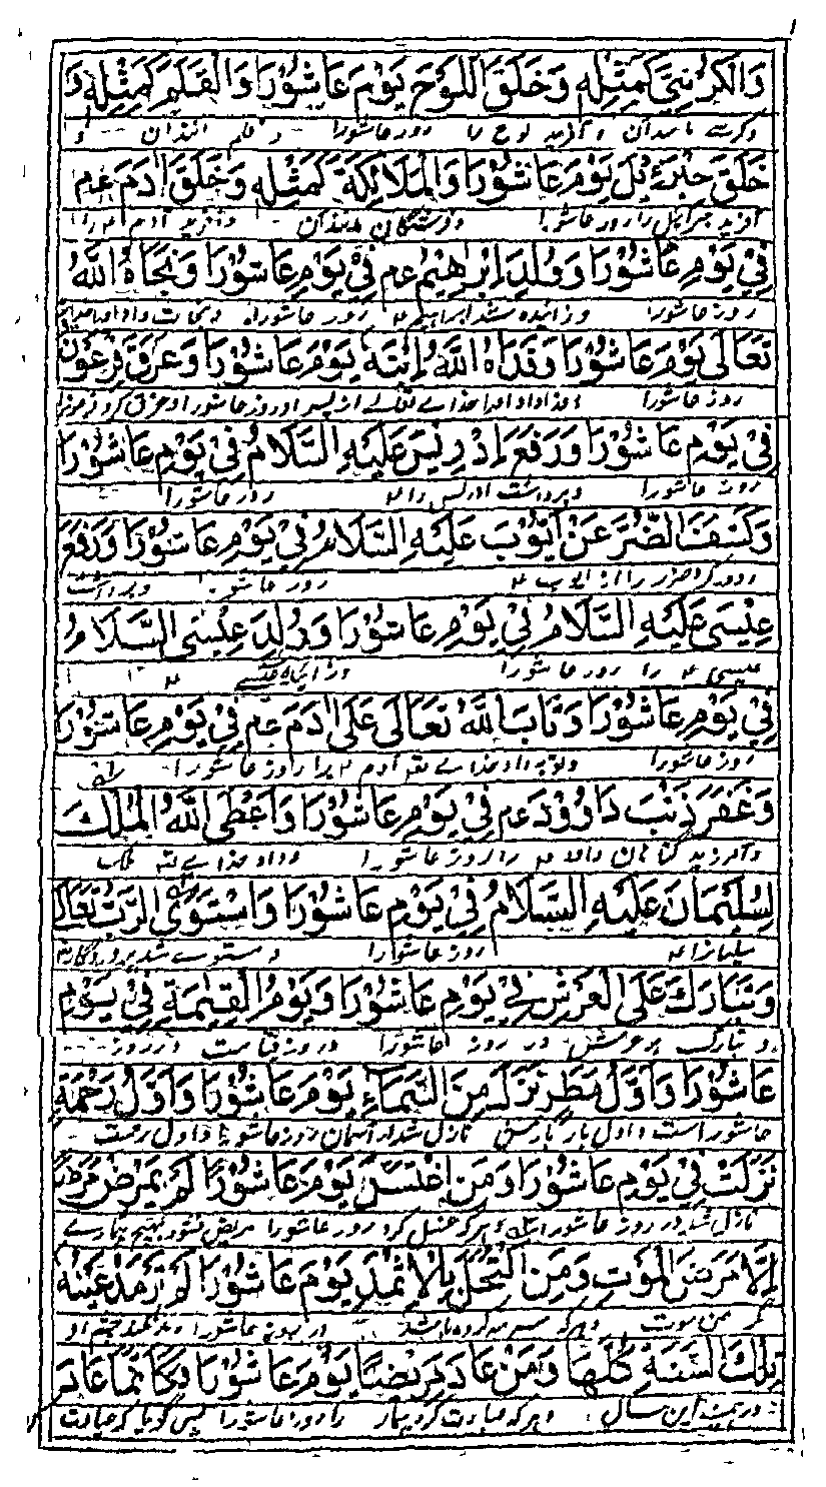 وَالْكُرْسِيَّ كَمِثْلِهِ وَخَلَقَ اللَّوْحَ يَوْمَ عَاشُوْرَا وَالْقَلَمَ كَمِثْلِهِ وَ
وکرسے مانندان وآفرید لوح را روز عاشورا وقلم مانندان و
خَلَقَ جِبْرَءِيْلَ يَوْمَ عَاشُوْرَا وَالْمَلَائِكَةَ كَمِثْلِهِ وَخَلَقَ اٰدَمَ عم
آفرید جبرائیل را روز عاشورا وفرشتگان مانندان وآفرید آدم ۴ را
فِيْ يَوْمِ عَاشُوْرَا وَوُلِدَ اِبْرٰهِيْمُ عم فِيْ يَوْمِ عَاشُوْرَا وَنَجَاهُ اللّٰهُ
روز عاشورا وزائیده شد ابراہیم ۴ روز عاشورا ونجات داد اورا
تَعَالٰى يَوْمَ عَاشُوْرَا وَفَدَاهُ اللّٰهُ اِبْنَهُ يَوْمَ عَاشُوْرَا وَغَرَقَ فِرْعَوْنَ
روز عاشورا وفدا داد اورا خداے تعالے از پسر او روز عاشورا وغرق کرد فرعون
فِيْ يَوْمِ عَاشُوْرَا وَرَفَعَ اِدْرِيْسَ عَلَيْهِ السَّلَامُ فِيْ يَوْمِ عَاشُوْرَا
روز عاشورا وبرداشت ادریس را ۴ روز عاشورا
وَكَشَفَ الضُّرَّ عَنْ اَيُّوْبَ عَلَيْهِ السَّلَامُ فِيْ يَوْمِ عَاشُوْرَا وَرَفَعَ
ودور کرد ضرر را از ایوب ۴ روز عاشورا وبرداشت
عِيْسٰى عَلَيْهِ السَّلَامُ فِيْ يَوْمِ عَاشُوْرَا وَوُلِدَ عِيْسَى السَّلَامُ
عیسی ۴ را روز عاشورا ۴
فِيْ يَوْمِ عَاشُوْرَا وَتَابَ اللّٰهُ تَعَالٰى عَلٰى اٰدَمَ عم فِيْ يَوْمِ عَاشُوْرَا
روز عاشورا وتوبہ داد خداے تعالے آدم ۴ را روز عاشورا
وَغَفَرَ ذَنْبَ دَاوُوْدَ عم فِيْ يَوْمِ عَاشُوْرَا وَاَعْطَى اللّٰهُ الْمُلْكَ
وآمرزید گناہان داود ۴ را روز عاشورا وداد خداے ملک
لِسُلَيْمَانَ عَلَيْهِ السَّلَامُ فِيْ يَوْمِ عَاشُوْرَا وَاسْتَوَى الرَّبُّ تَعَالٰى
سلیمان را ۴ روز عاشورا ومستوے شد پروردگار
وَتَبَارَكَ عَلَى الْعَرْشِ فِيْ يَوْمِ عَاشُوْرَا وَيَوْمُ الْقِيٰمَةِ فِيْ يَوْمِ
وتبارک برعرش در روز عاشورا وروز قیامت در روز
عَاشُوْرَا وَاَوَّلُ مَطَرٍ نَزَلَ مِنَ السَّمَاءِ يَوْمَ عَاشُوْرَا وَاَوَّلُ رَحْمَةٍ
عاشورا است واول بار نازل شد از آسمان روز عاشورا واول رحمت
نَزَلَتْ فِيْ يَوْمِ عَاشُوْرَا وَمَنِ اغْتَسَلَ يَوْمَ عَاشُوْرَا لَمْ يَمْرَضْ مَرَضًا
نازل شد در روز عاشورا وہرکہ غسل کرد روز عاشورا مریض نشود بہیچ بیمارے
اِلَّا مَرَضَ الْمَوْتِ وَمَنِ اكْتَحَلَ بِالْاِثْمَدِ يَوْمَ عَاشُوْرَا لَمْ تَرْمَدْ عَيْنُهُ
مگر مرض موت وہرکہ سرمہ روز عاشورا چشم او
تِلْكَ السَّنَةِ كُلِّهَا وَمَنْ عَادَ مَرِيْضًا يَوْمَ عَاشُوْرَا فَكَاَنَّمَا عَادَ
این سال وہرکہ عیادت کرد بیمار را روز عاشورا پس گویا کہ عیادت